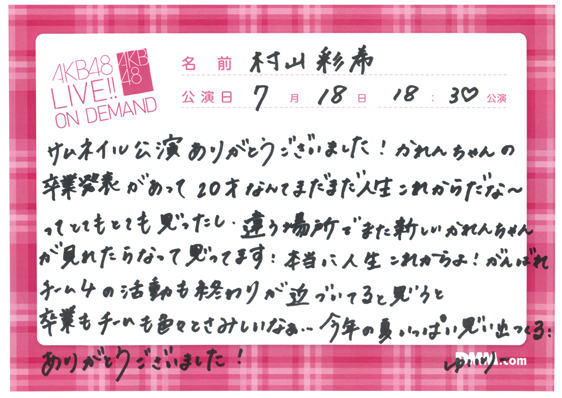 AKB48
LIVE!!
ON DEMAND
AKB
48
名前 村山彩希
公演日 7月18日 18:30公演
サムネイル公演ありがとうございました！かれんちゃんの
卒業発表があって20才なんてまだまだ人生これからだな～
ってとてもとても思ったし、違う場所でまた新しいかれんちゃん
が見れたらなって思ってます！本当に人生これからよ！がんばれ
チーム4の活動も終わりが近づいてると思うと
卒業もチームも色々とさみしいなぁ… 今年の夏いっぱい思い出つくる:
ありがとうございました！
DMM.com
ゆいりー